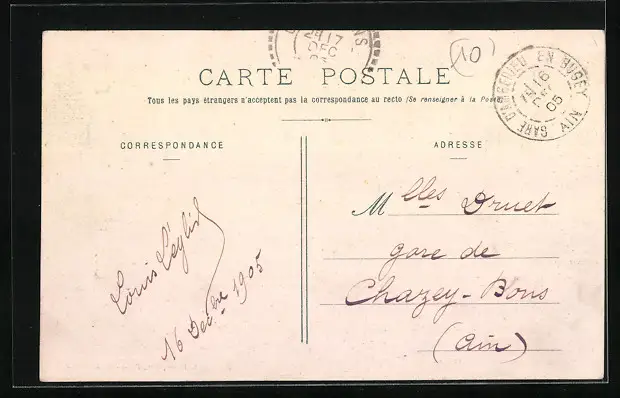 17
DEC
(10)
GARE D'AMBÉRIEU EN BUGEY AIN
16
DEC
05
CARTE POSTALE
Tous les pays étrangers n'acceptent pas la correspondance au recto (Se renseigner à la Poste)
CORRESPONDANCE
ADRESSE
Mlles Druet
gare de
Chazey-Bons
(Ain)
Louis
16 Décbre 1905